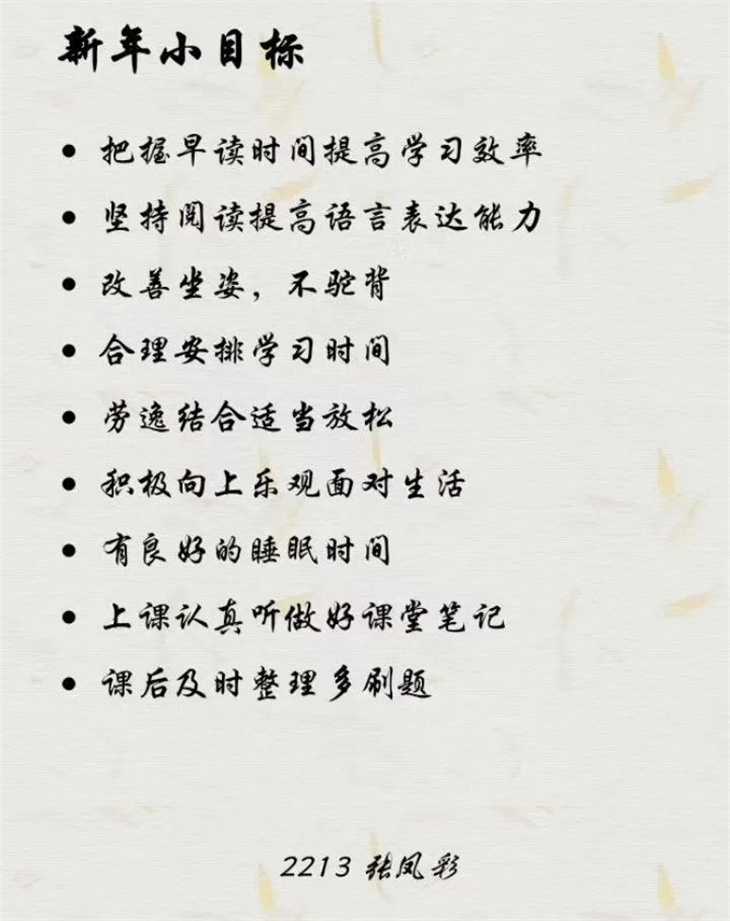 新年小目标
• 把握早读时间提高学习效率
• 坚持阅读提高语言表达能力
• 改善坐姿，不驼背
• 合理安排学习时间
• 劳逸结合适当放松
• 积极向上乐观面对生活
• 有良好的睡眠时间
• 上课认真听做好课堂笔记
• 课后及时整理多刷题
2213 张凤彩